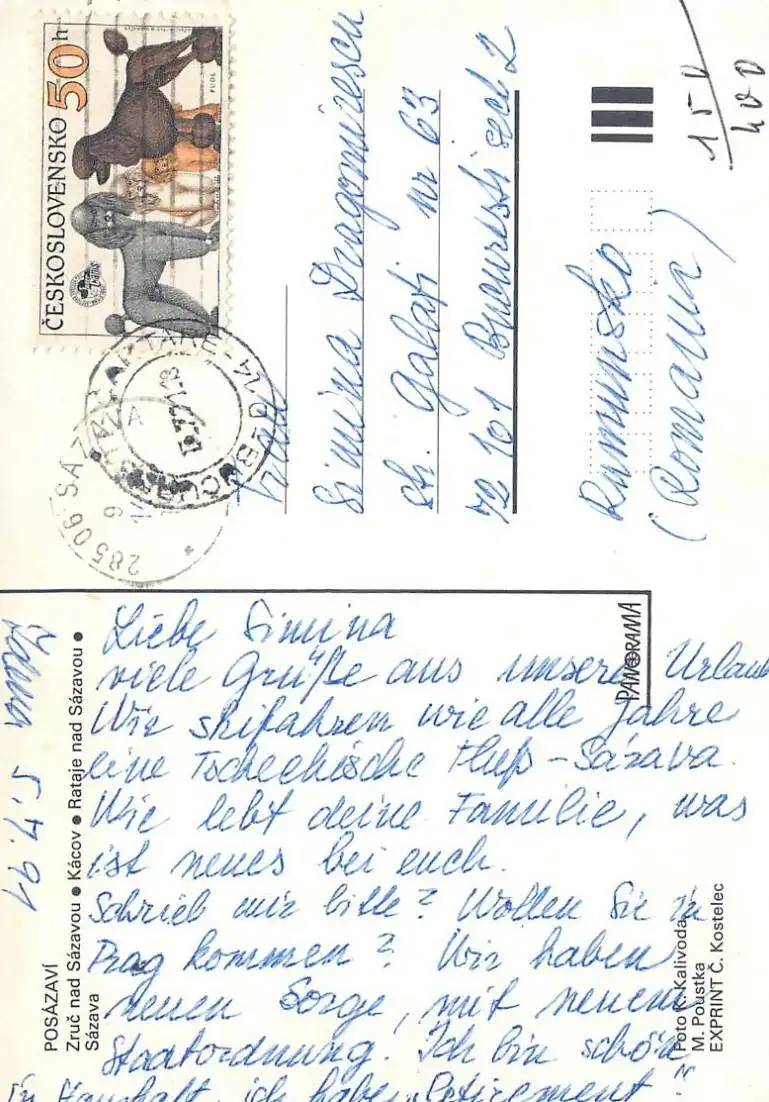 ČESKOSLOVENSKO 50h
PUDL
Simina Dragomirescu
str. Galati nr 63
72 101 Bucuresti sect 2
Rumunsko
(Romania)
150
400
285 06 SÁZAVA
PANORAMA
Liebe Simina
viele Grüße aus unsere Urlaub
Wir skifahren wie alle Jahre
eine Tschechische Fluß - Sázava.
Wie lebt deine Familie, was
ist neues bei euch.
Schrieb mir bitte? Wollen Sie in
Prag kommen? Wir haben
neuen Sorge, mit neuem
Staatordnung. Ich bin schön
in Haushalt, ich habe „Retirement“
5.7.91
POSÁZAVÍ
Zruč nad Sázavou ● Kácov ● Rataje nad Sázavou ●
Sázava
Foto K. Kalivoda,
M. Poustka
EXPRINT Č. Kostelec